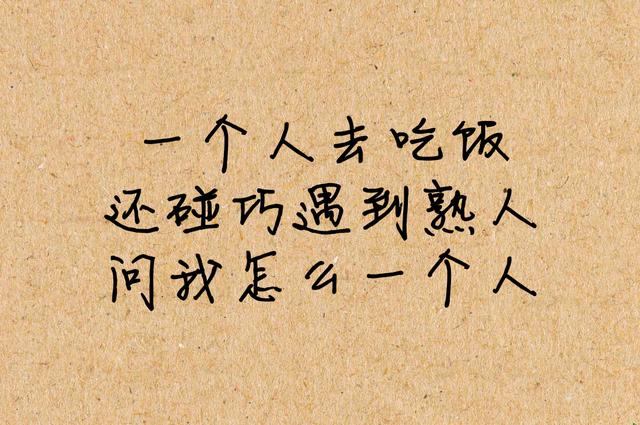 一个人去吃饭
还碰巧遇到熟人
问我怎么一个人